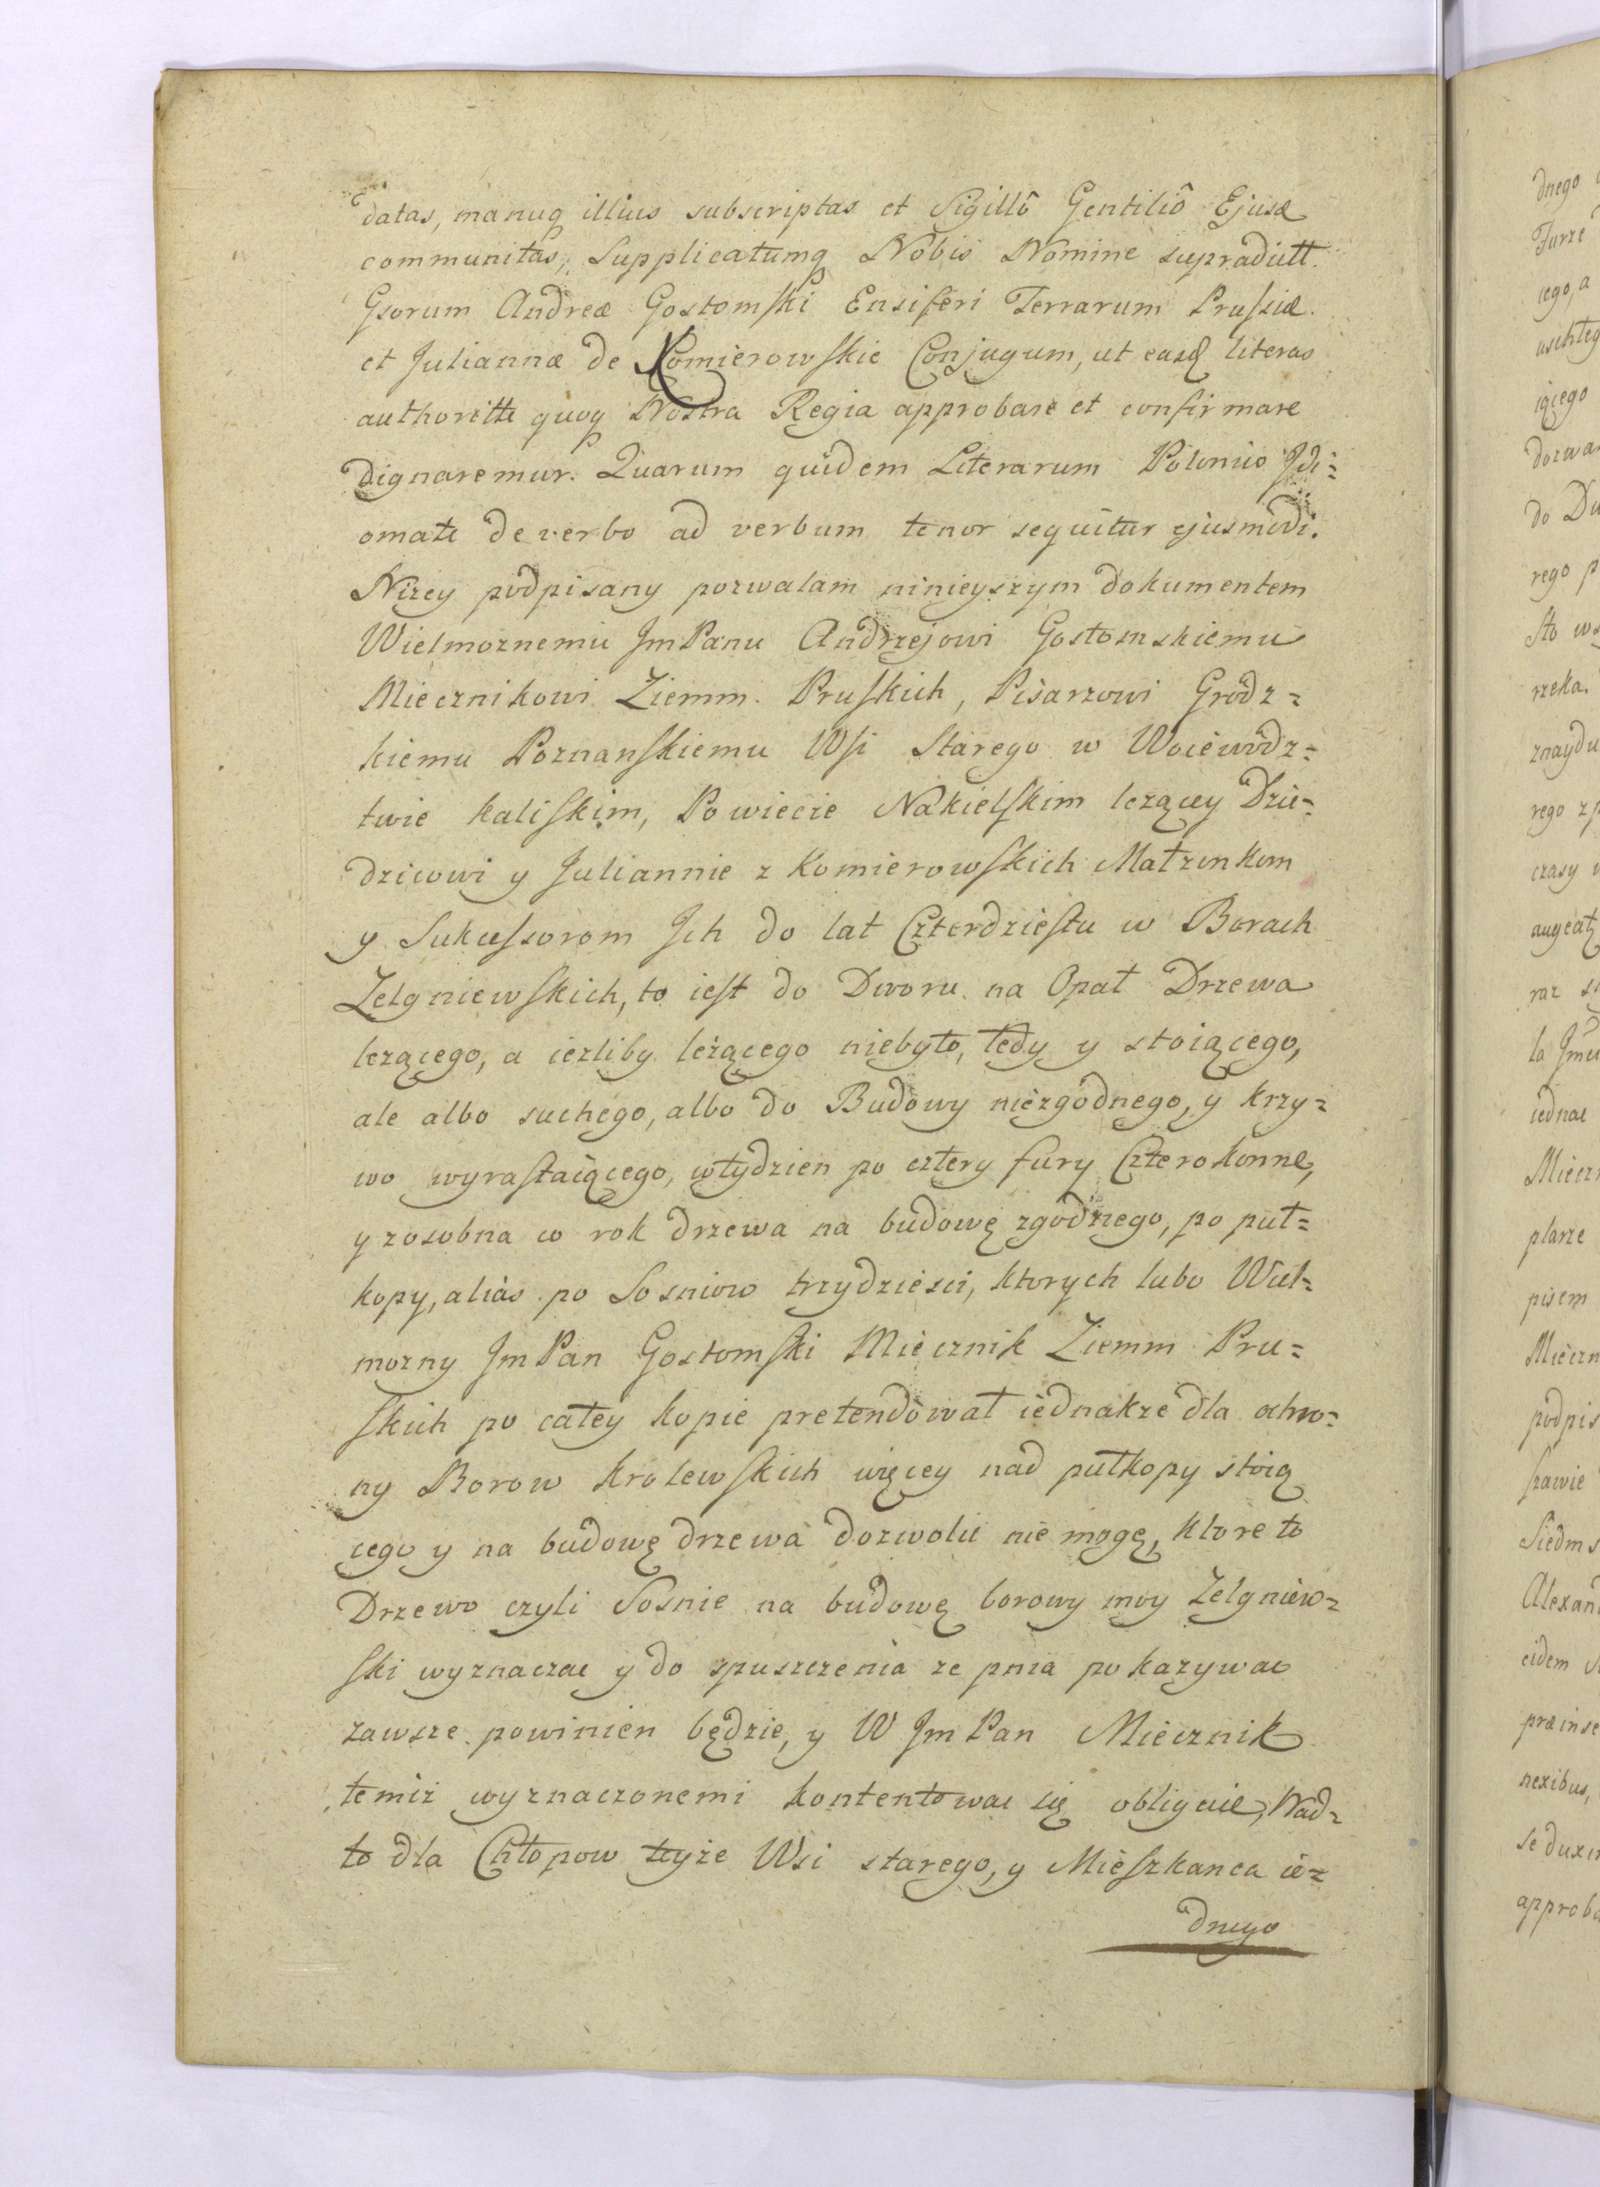 datas, manuq illius subscriptas et Sigillô Gentiliô Ejusd
communitas, Supplicatumq Nobis Nomine supradictt.
Gsorum Andreæ Gostomski Ensiferi Terrarum Prussiæ
et Juliannæ de Komierowskie Conjugum, ut easd literas
authoritte quoq Nostra Regia approbare et confirmare
dignaremur. Quarum quidem Literarum Polonico Jdi=
omate de verbo ad verbum tenor sequitur ejusmodi.
Nizey podpisany pozwalam ninieyszym dokumentem
Wielmoznemu JmPanu Andrzejowi Gostomskiemu
Miecznikowi Ziemm. Pruskich, Pisarzowi Grodz=
kiemu Poznanskiemu Wsi Starego w Wojewodz=
twie Kaliskim, Powiecie Nakielskim lezącey Dzie=
dzicowi y Juliannie z Komierowskich Małzonkom
y Sukcessorom Jch do lat Czterdziestu w Borach
Zelgniewskich, to iest do Dworu na Opał Drzewa
lezącego, a iezliby leżącego niebyło, tedy y stoiącego,
ale albo suchego, albo do Budowy niezgodnego, y krzy=
wo wyrastaiącego, wtydzien po cztery fury Czterokonne,
y zosobna w rok drzewa na budowę zgodnego, po puł=
kopy, alias po Sosniow trzydziesci, ktorych lubo Wiel=
mozny Jm Pan Gostomski Miecznik Ziemm Pru=
skich po całey kopie pretendował iednakze dla ochro=
ny Borow Krolewskich więcey nad pułkopy stoią
cego y na budowę drzewa dozwolic nie mogę, ktore to
Drzewo czyli Sosnie na budowę borowy moy Zelgniew=
ski wyznaczac y do spuszczenia ze pnia pokazywac
zawsze powinien będzie, y W Jm Pan Miecznik
temiz wyznaczonemi kontentowac się obliguie, Nad=
to dla Chłopow teyże Wsi starego, y Mieszkanca ie=
dnego